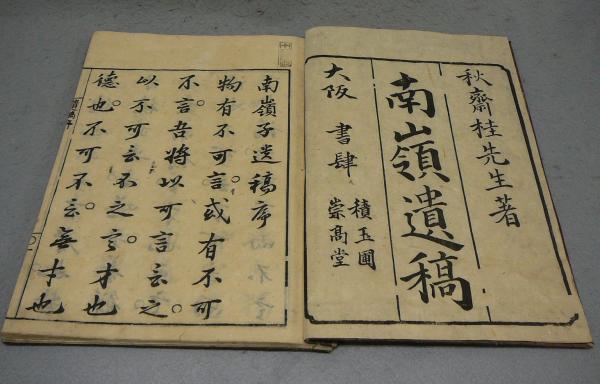 秋齋桂先生著
南嶺遺稿
大阪 書肆 積玉圃
崇髙堂
南嶺子遺稿序
物有不可言或有不可
不言。吾將以可言云之。
以不可云不之。言才也
德也。不可不云。無才也